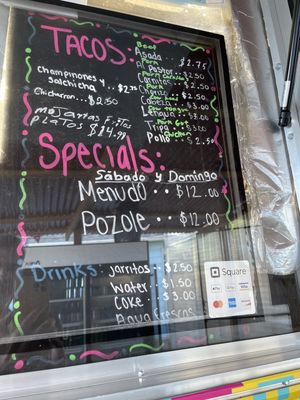 TACOS
Beef
Asada $2.75
Pork
Al Pastor $2.50
Carnitas $2.50
Pork
Chorizo $2.50
Cabeza $3.00
Cow tongue
Lengua $3.00
Tripa $3.00
Chicken
Pollo $2.50
Champiñones y
salchicha $2.75
Chicharron $2.50
Mojarras Fritas
Platos $14.99
Specials:
Sábado y Domingo
Menudo $12.00
Pozole $12.00
Drinks:
Jarritos $2.50
Water $1.50
Coke $3.00
Agua Frescas
Square